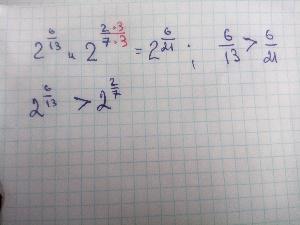 2^{6/13} и 2^{2·3/7·3} = 2^{6/21} ; 6/13 > 6/21
2^{6/13} > 2^{2/7}